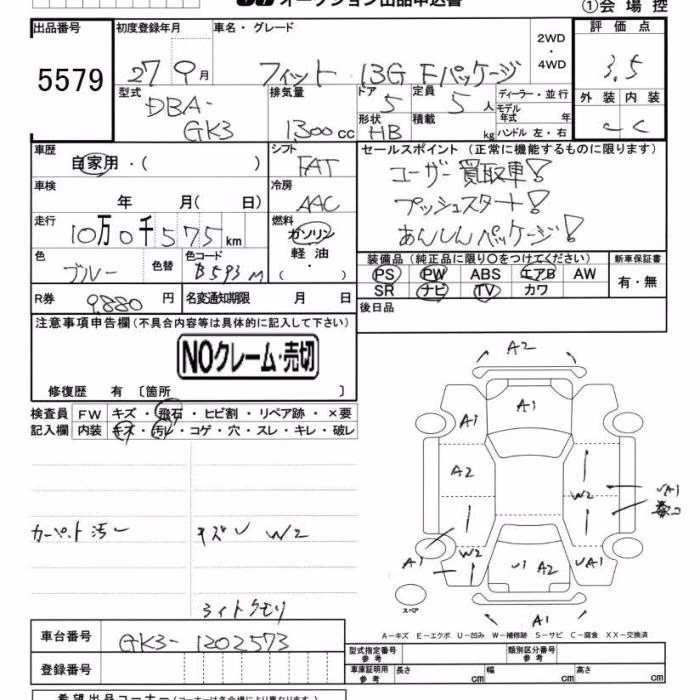 オークション出品申込書
①会場控
出品番号 初度登録年月 車名・グレード 2WD・4WD 評価点
5579 27 9月 フィット 13G Fパッケージ 3.5
型式 排気量 ドア 定員 ディーラー・並行 外装 内装
DBA-GK3 1300cc 5 5人 モデル年式 年 C C
形状 HB 積載 kg ハンドル 左・右
車歴 シフト セールスポイント (正常に機能するものに限ります)
自家用・( ) FAT ユーザー買取車!
車検 冷房 プッシュスタート!
年 月( 日) AAC あんしんパッケージ!
走行 燃料
10万0千575km ガソリン・軽油・( )
色 色替 色コード 装備品 (純正品に限り○をつけてください) 新車保証書
ブルー B593M PS PW ABS エアB AW 有・無
R券 9,880円 名変通知期限 月 日 SR ナビ TV カワ
後日品
注意事項申告欄(不具合内容等は具体的に記入して下さい)
NOクレーム・売切
修復歴 有〔箇所 〕
検査員 FW キズ・飛石・ヒビ割・リペア跡・×要
記入欄 内装 キズ・汚レ・コゲ・穴・スレ・キレ・破レ
A2
A1
A1
A2
W2
A1
カーペット汚レ キズ W2
A1 W2 A2 A1
ライトクモリ
スペア
A1
A-キズ E-エクボ U-凹み W-補修跡 S-サビ C-腐食 XX-交換済
車台番号 GK3-1202573
型式指定番号 参考 類別区分番号 参考
登録番号 車庫証明用 参考 長さ cm 幅 cm 高さ cm
希望出品コーナー(コーナーは各会場により異なります)